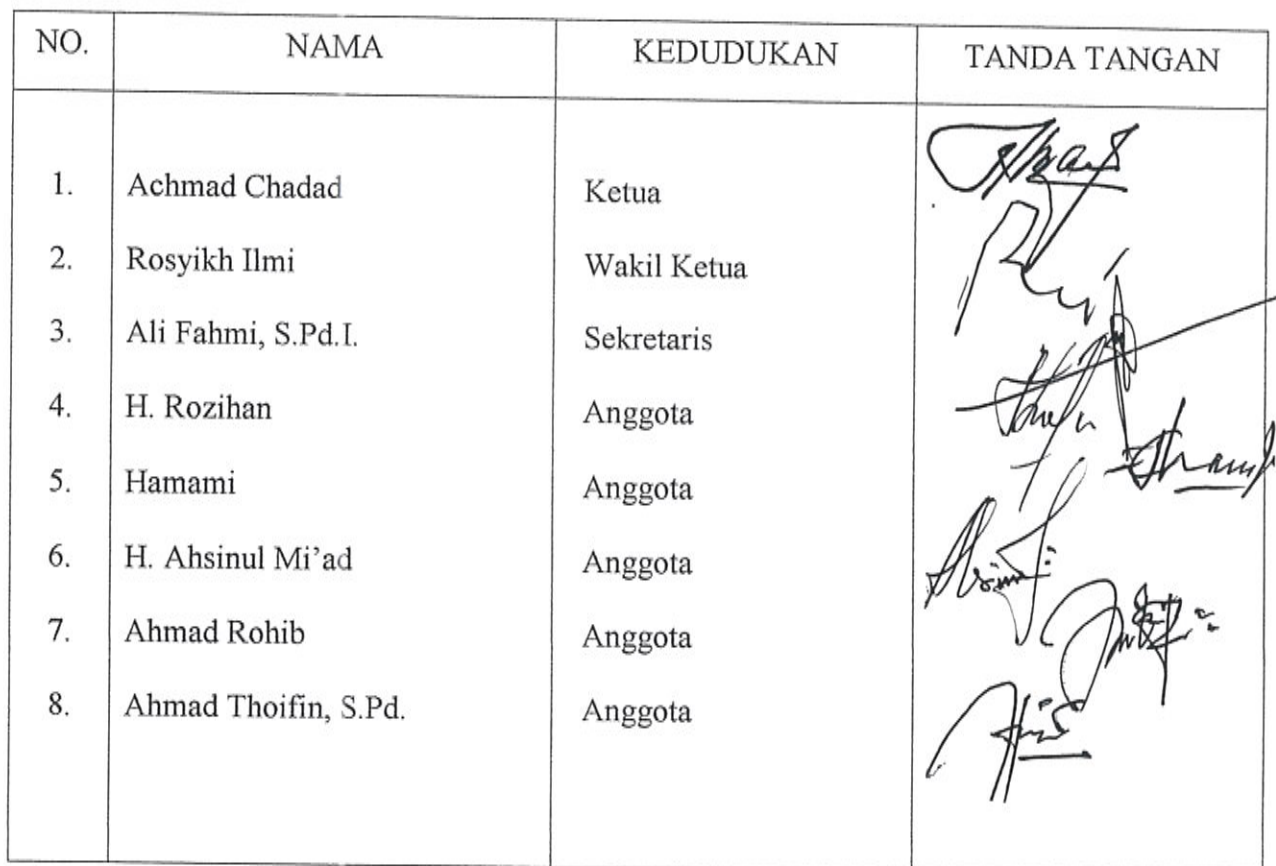 NO. NAMA KEDUDUKAN TANDA TANGAN
1. Achmad Chadad Ketua
2. Rosyikh Ilmi Wakil Ketua
3. Ali Fahmi, S.Pd.I. Sekretaris
4. H. Rozihan Anggota
5. Hamami Anggota
6. H. Ahsinul Mi’ad Anggota
7. Ahmad Rohib Anggota
8. Ahmad Thoifin, S.Pd. Anggota